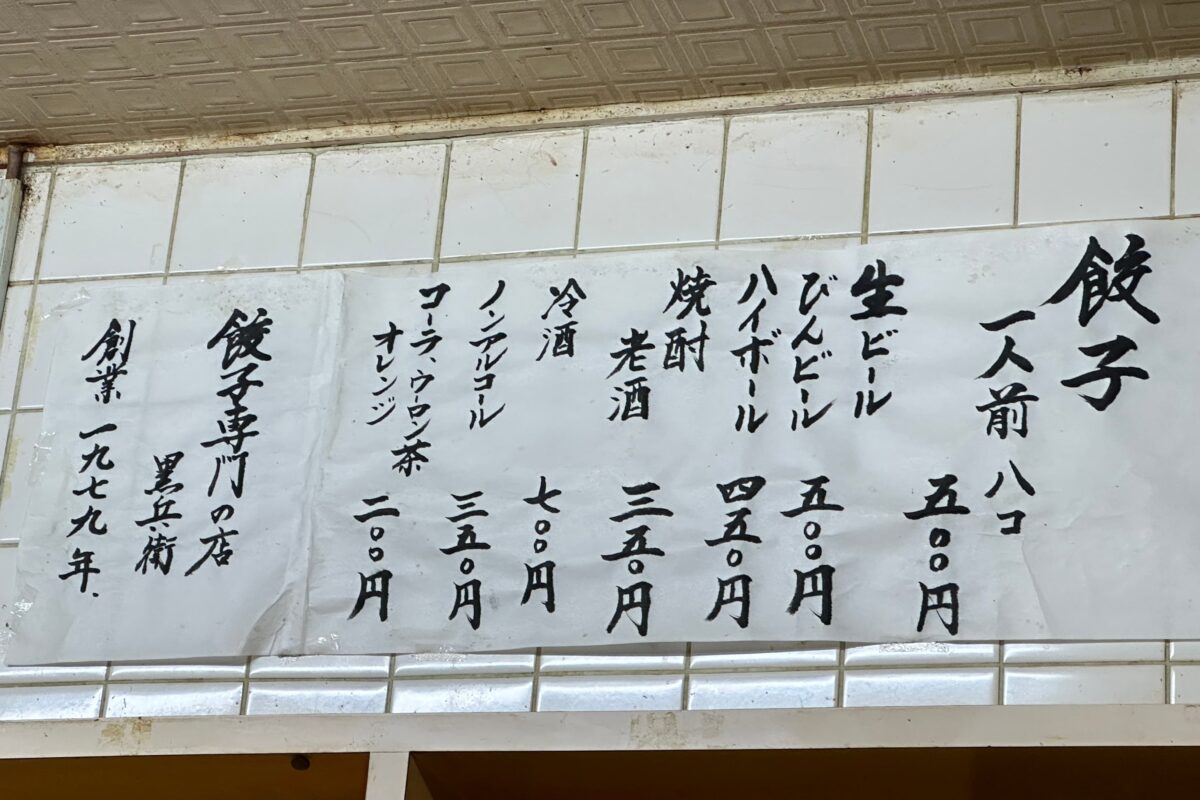 餃子
一人前 八コ
五〇〇円
生ビール
びんビール 五〇〇円
ハイボール 四五〇円
焼酎
老酒 三五〇円
冷酒 七〇〇円
ノンアルコール 三五〇円
コーラ、ウーロン茶
オレンジ 二〇〇円
餃子専門の店
黒兵衛
創業 一九七九年.